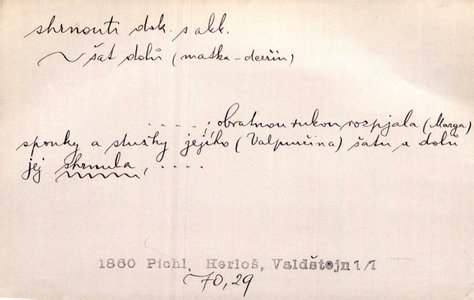 shrnouti dok. s akk.
~ šat dolů (matka - dceřin)
. . . . . ; obratnou rukou rozpjala (Marga)
sponky a stužky jejího (Valpurčina) šatu a dolů
jej shrnula, . . . . .
1860 Pichl, Herloš, Valdštejn 1/1
70, 29